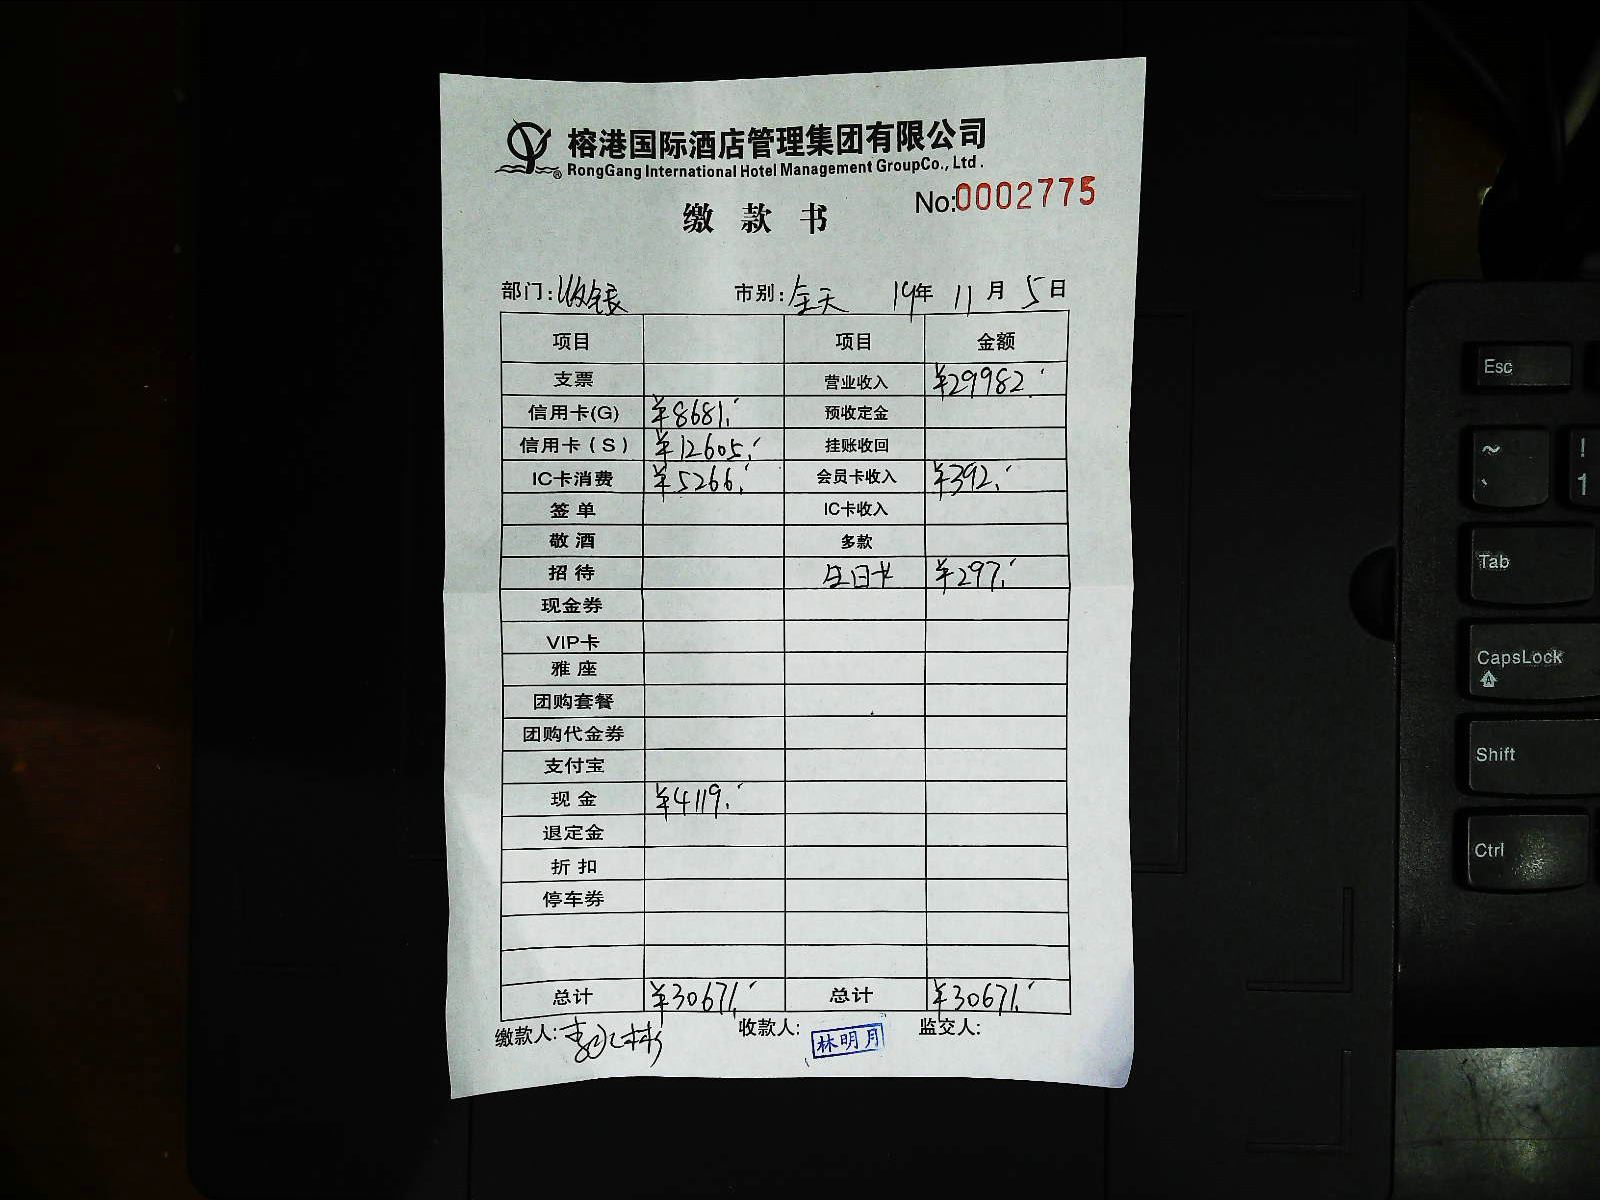 榕港国际酒店管理集团有限公司
® RongGang International Hotel Management GroupCo., Ltd.
No:0002775
缴款书
部门:收银 市别:全天 19年 11月 5日
项目 项目 金额
支票 营业收入 ¥29982.
信用卡(G) ¥8681. 预收定金
信用卡(S) ¥12605. 挂账收回
IC卡消费 ¥5266. 会员卡收入 ¥392.
签单 IC卡收入
敬酒 多款
招待 生日卡 ¥297.
现金券
VIP卡
雅座
团购套餐
团购代金券
支付宝
现金 ¥4119.
退定金
折扣
停车券
总计 ¥30671. 总计 ¥30671.
缴款人: 收款人: 林明月 监交人:
Esc
~ ` ! 1
Tab
CapsLock
A
Shift
Ctrl